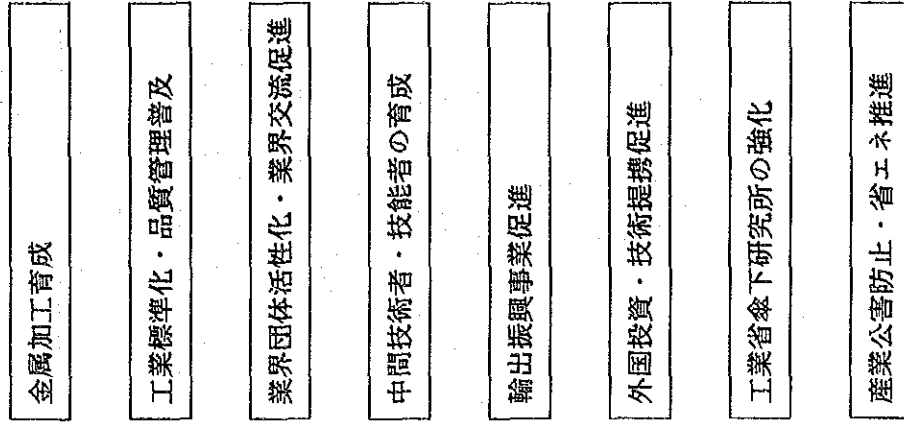 金属加工育成
工業標準化・品質管理普及
業界団体活性化・業界交流促進
中間技術者・技能者の育成
輸出振興事業促進
外国投資・技術提携促進
工業省傘下研究所の強化
産業公害防止・省エネ推進